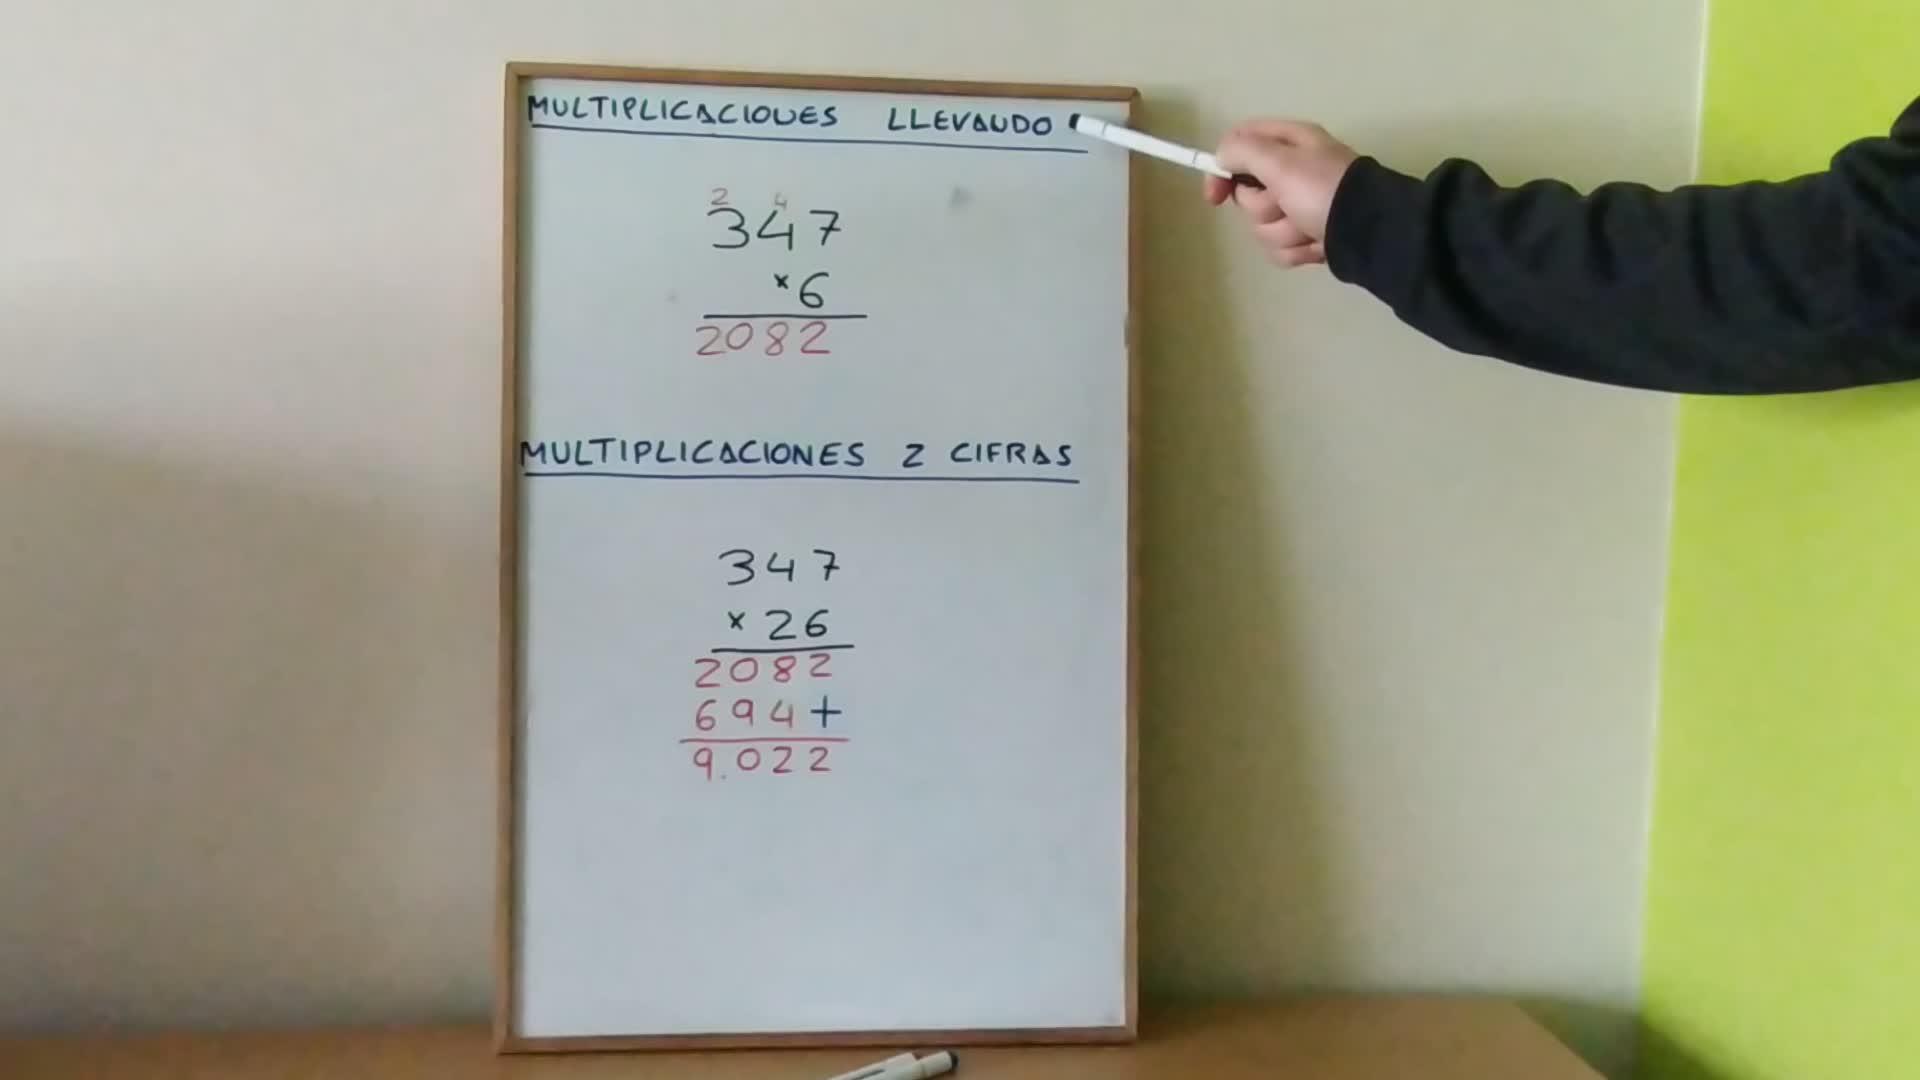 MULTIPLICACIONES LLEVANDO
2 4
347
×6
2082
MULTIPLICACIONES 2 CIFRAS
347
×26
2082
694+
9.022